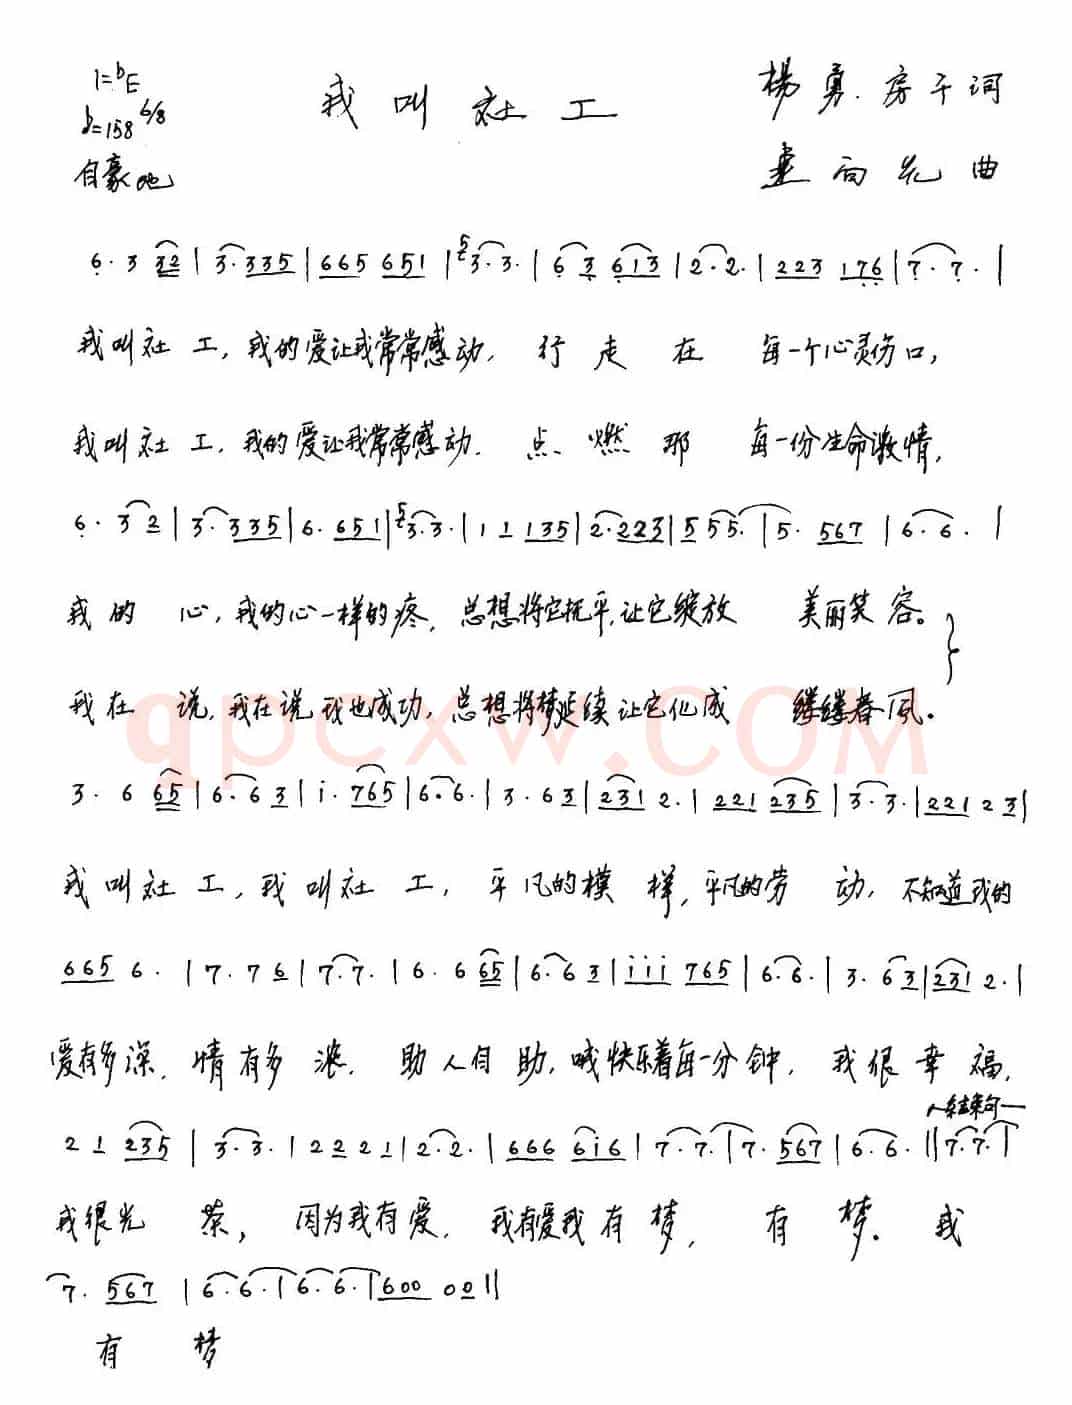 1=bE
我叫社工
杨勇.房千词
♪=158 6/8
自豪地
向光曲
6. 3 32 | 3. 335 | 665 651 | 5 3. 3. | 6 3 613 | 2. 2. | 223 176 | 7. 7. |
我叫社工,我的爱让我常常感动. 行走在 每一个心灵伤口,
我叫社工,我的爱让我常常感动. 点燃那 每一份生命激情,
6. 3 2 | 3. 335 | 6. 651 | 5 3. 3. | 1 1 135 | 2. 223 | 5 5 5. | 5. 567 | 6. 6. |
我的 心,我的心一样的疼, 总想将它抚平,让它绽放 美丽笑容。
我在 说,我在说我也成功,总想将梦延续让它化成 缕缕春风.
qpcxw.COM
3. 6 65 | 6. 6 3 | i. 765 | 6. 6. | 3. 6 3 | 231 2. | 221 235 | 3. 3. | 221 2 3 |
我叫社工,我叫社工, 平凡的模样,平凡的劳动, 不知道我的
665 6. | 7. 7 6 | 7. 7. | 6. 6 65 | 6. 6 3 | iii 765 | 6. 6. | 3. 6 3 | 231 2. |
爱有多深, 情有多浓. 助人自助,喊快乐着每一分钟, 我很幸福,
结束句
2 1 235 | 3. 3. | 2 2 2 1 | 2. 2. | 666 6i6 | 7. 7. | 7. 567 | 6. 6. || 7. 7. |
我很光荣, 因为我有爱. 我有爱我有梦, 有梦. 我
7. 567 | 6. 6. | 6. 6. | 600 00 ||
有 梦